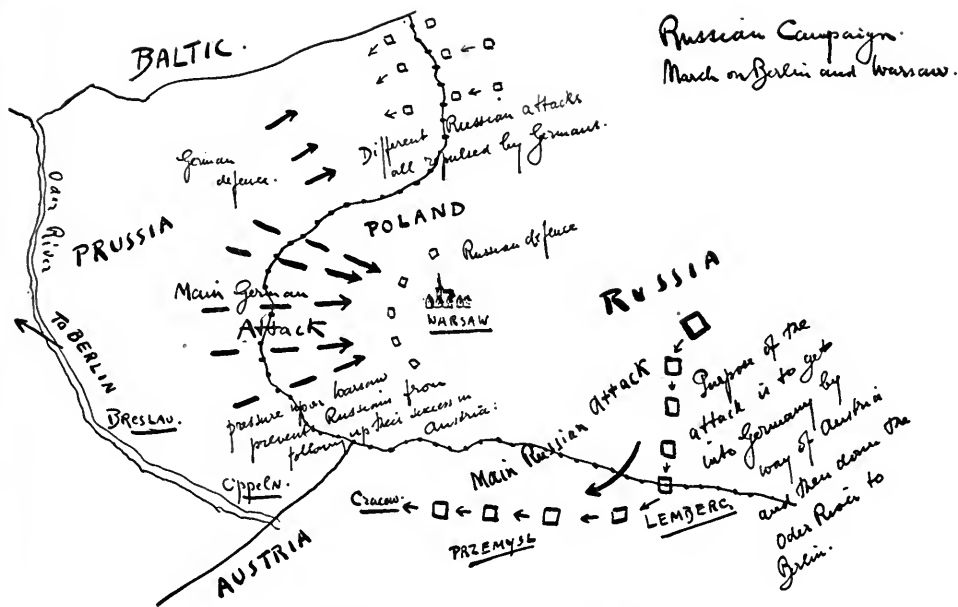 Russian Campaign.
March on Berlin and Warsaw.
BALTIC.
German
defence.
Different Russian attacks
all repulsed by Germans.
Oder River
PRUSSIA
POLAND
Russian defence
Main German
Attack
WARSAW
RUSSIA
To BERLIN
pressure upon Warsaw
prevents Russians from
following up their success in
Austria:
BRESLAU.
Oppeln.
Main Russian Attack
Purpose of the
attack is to get
into Germany by
way of Austria
and then down the
Oder River to
Berlin.
Cracow.
PRZEMYSL
LEMBERG.
AUSTRIA